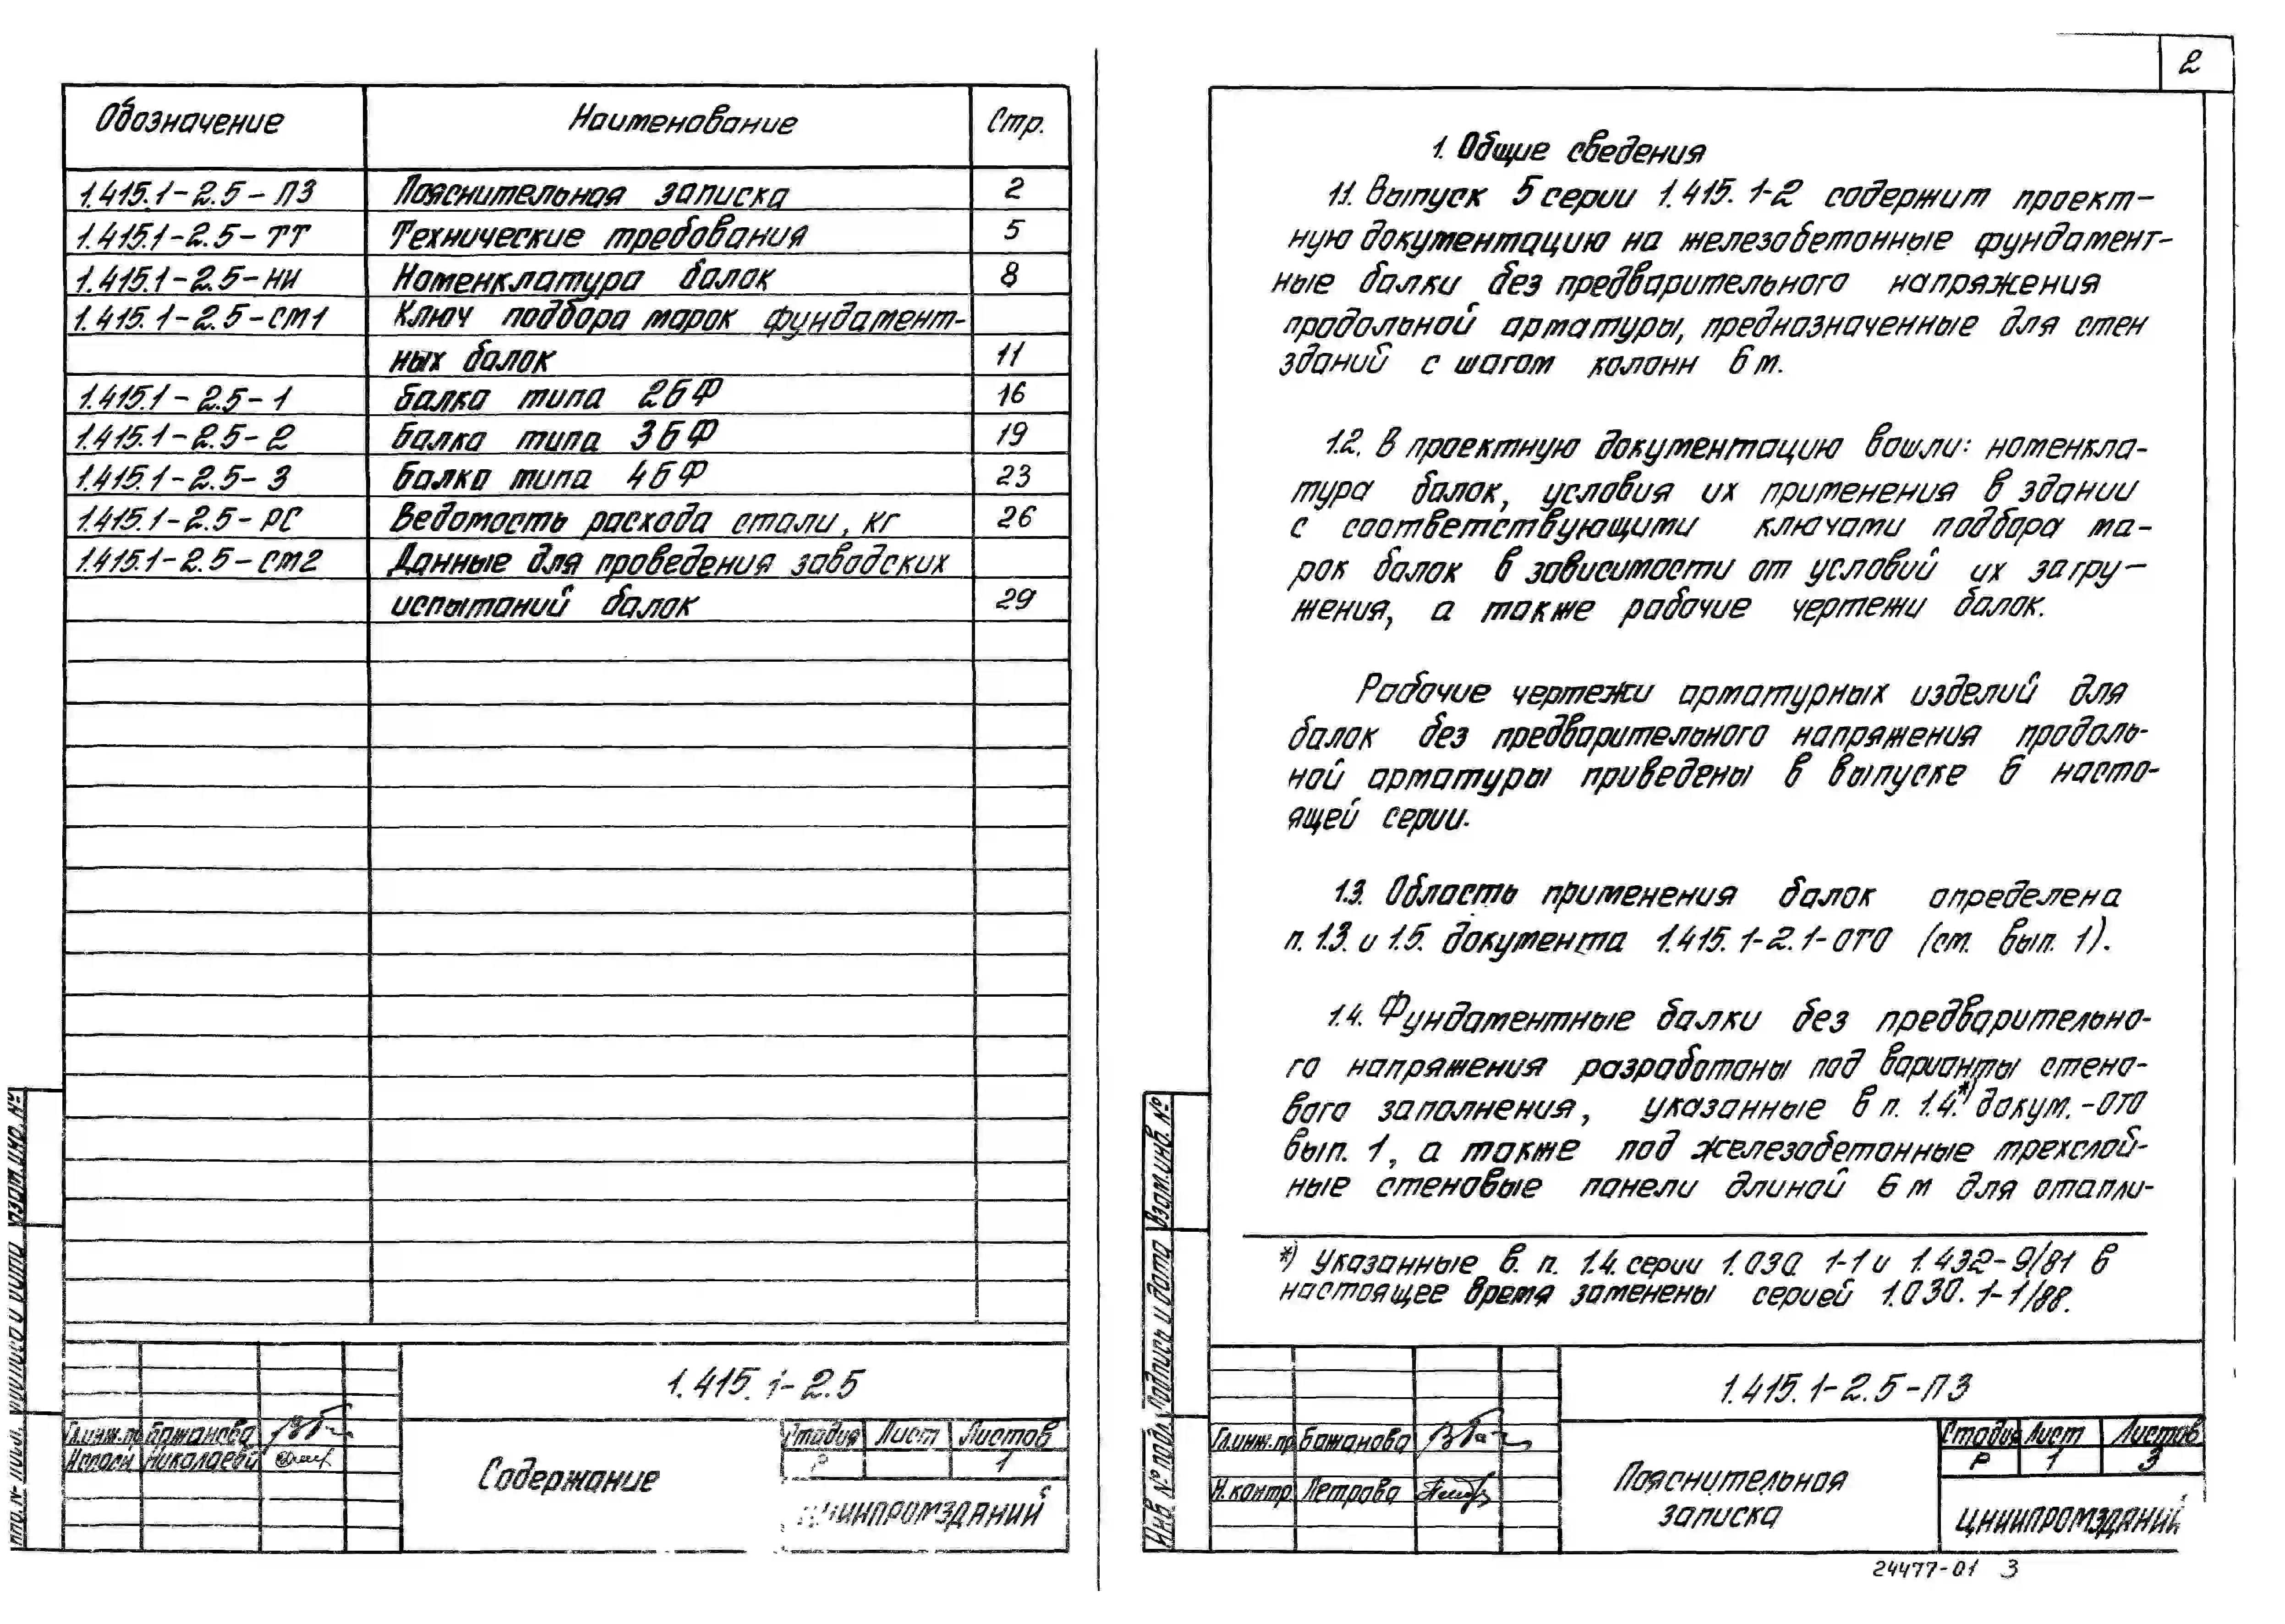 Обозначение Наименование Стр.
1.415.1-2.5-ПЗ Пояснительная записка 2
1.415.1-2.5-ТТ Технические требования 5
1.415.1-2.5-НИ Номенклатура балок 8
1.415.1-2.5-СМ1 Ключ подбора марок фундамент-
ных балок 11
1.415.1-2.5-1 Балка типа 2БФ 16
1.415.1-2.5-2 Балка типа 3БФ 19
1.415.1-2.5-3 Балка типа 4БФ 23
1.415.1-2.5-РС Ведомость расхода стали, кг 26
1.415.1-2.5-СМ2 Данные для проведения заводских
испытаний балок 29
1.415.1-2.5
Гл.инж.пр Бажанова
Николаева
Содержание
Стадия Лист Листов
Р 1
ЦНИИПРОМЗДАНИЙ
Взам.инв.№
Подпись и дата
2
1. Общие сведения
1.1. Выпуск 5 серии 1.415.1-2 содержит проект-
ную документацию на железобетонные фундамент-
ные балки без предварительного напряжения
продольной арматуры, предназначенные для стен
зданий с шагом колонн 6м.
1.2. В проектную документацию вошли: номенкла-
тура балок, условия их применения в здании
с соответствующими ключами подбора ма-
рок балок в зависимости от условий их загру-
жения, а также рабочие чертежи балок.
Рабочие чертежи арматурных изделий для
балок без предварительного напряжения продоль-
ной арматуры приведены в выпуске 6 насто-
ящей серии.
1.3. Область применения балок определена
п. 1.3. и 1.5. документа 1.415.1-2.1-ОТО (см. вып. 1).
1.4. Фундаментные балки без предварительно-
го напряжения разработаны под варианты стено-
вого заполнения, указанные в п. 1.4.*) докум.-ОТО
вып. 1, а также под железобетонные трехслой-
ные стеновые панели длиной 6м для отапли-
*) Указанные в. п. 1.4. серии 1.030.1-1 и 1.432-9/81 в
настоящее время заменены серией 1.030.1-1/88.
1.415.1-2.5-ПЗ
Гл.инж.пр Бажанова
Н.контр. Петрова
Пояснительная
записка
Стадия Лист Листов
Р 1 3
ЦНИИПРОМЗДАНИЙ
Взам.инв.№
Подпись и дата
Инв № подл.
24477-01 3